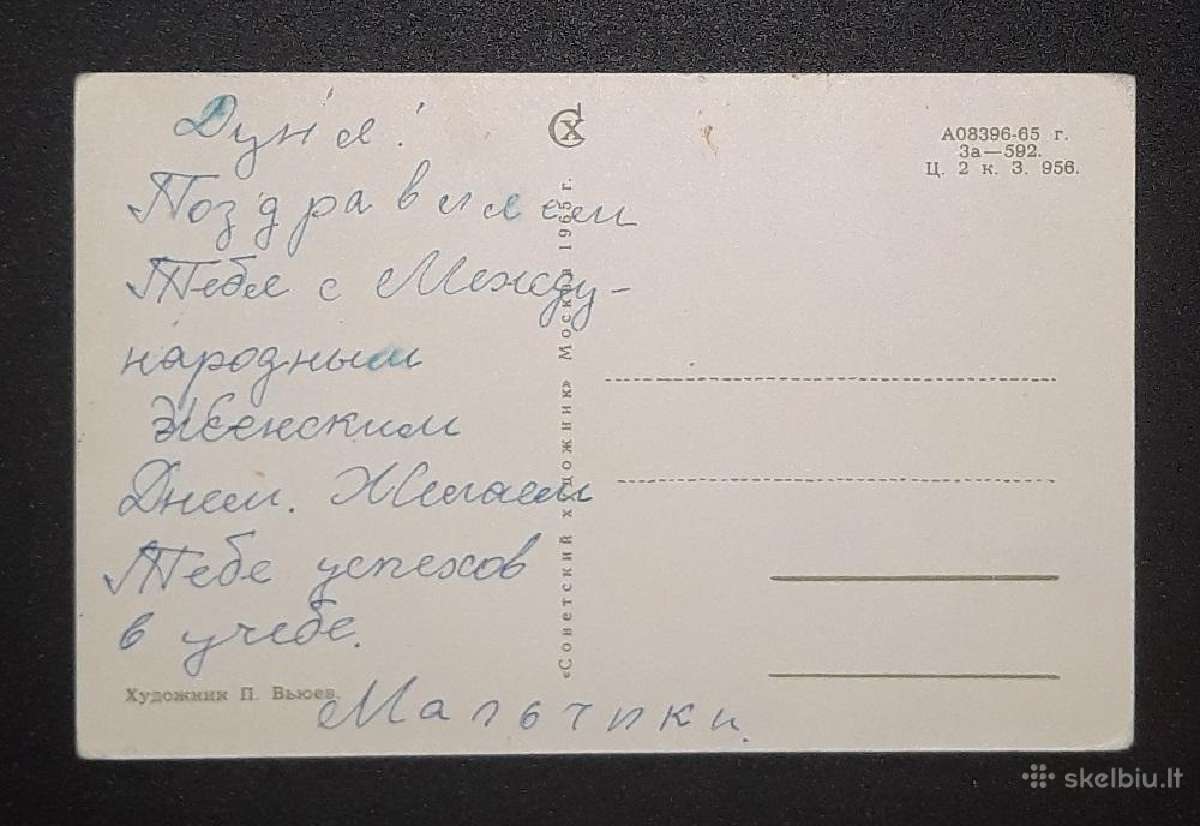 Дуня!
Поздравляем
Тебя с Между-
народным
Женским
Днем. Желаем
Тебе успехов
в учебе.
Мальчики.
Художник П. Вьюев.
«Советский художник» Москва 1965 г.
СХ
А08396-65 г.
За—592.
Ц. 2 к. З. 956.
skelbiu.lt